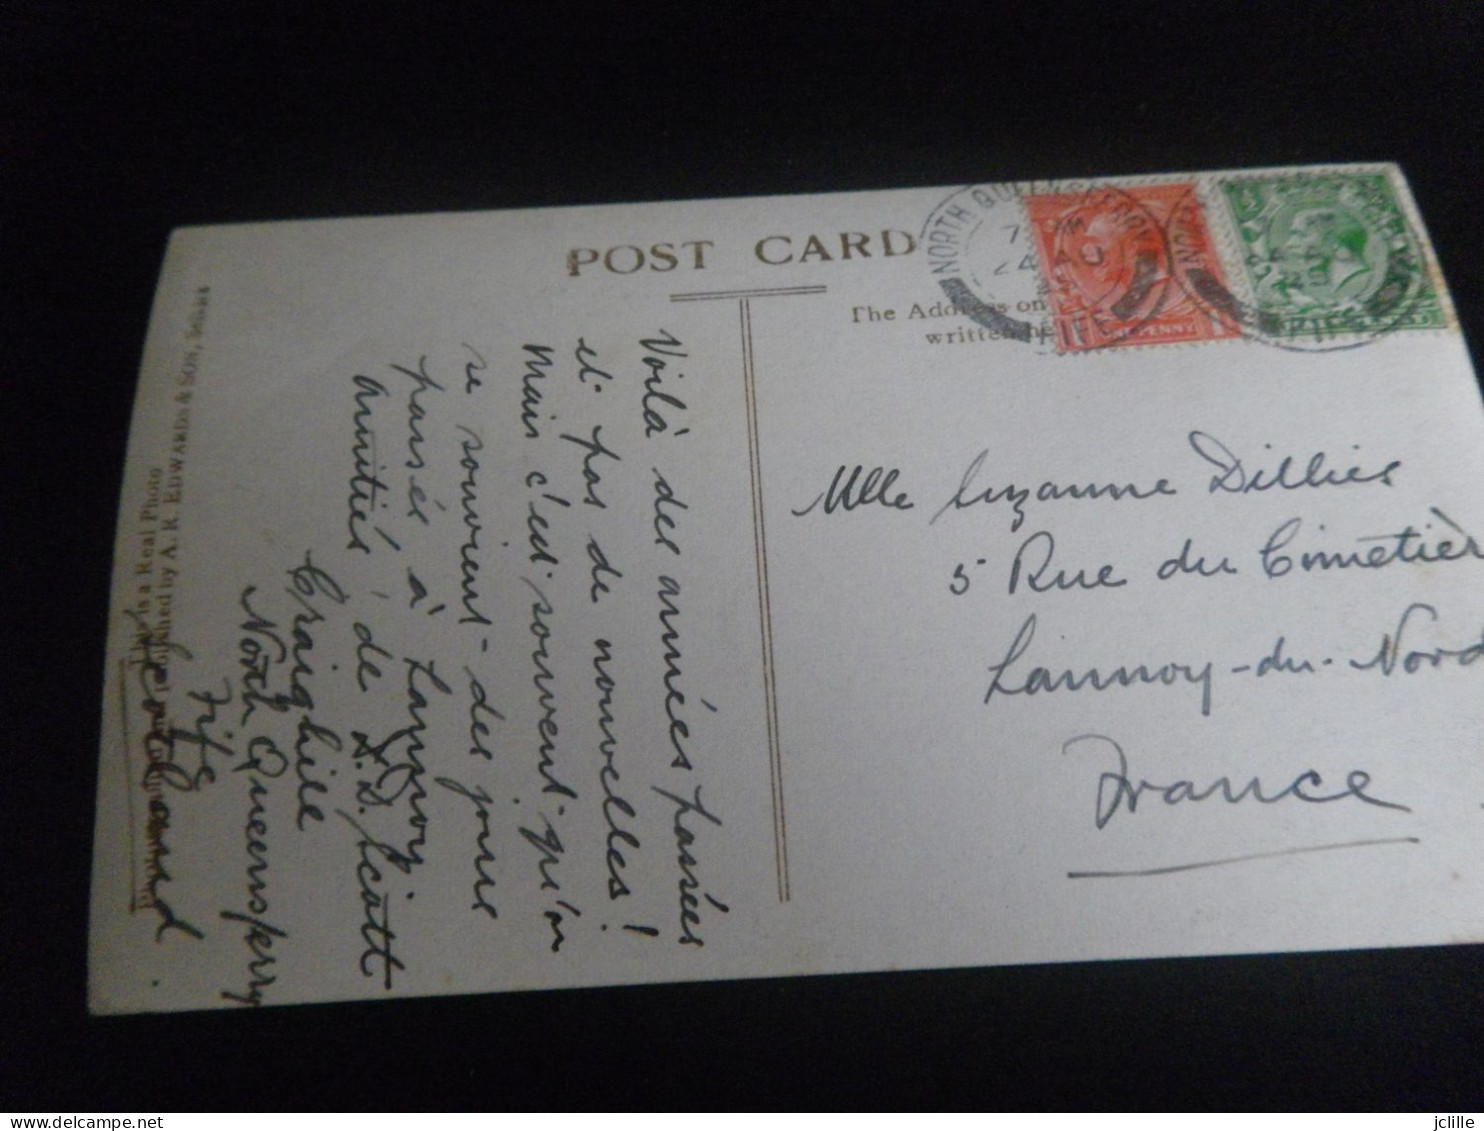 POST CARD
The Address on
written he
NORTH QUEENSFERRY
24 AU
FIFE
PENNY
FIFE
Voilà des années passées
et pas de nouvelles!
Mais c'est souvent qu'on
se souvient des jours
passés à Lannoy.
Amitiés, de
Scott
Craighill
North Queensferry
Fife
Scotland
Mlle Suzanne Dillies
5 Rue du Cimetièr
Lannoy-du-Nord
France
This is a Real Photo
Published by A. R. EDWARDS & SON, SELKIRK
jclille